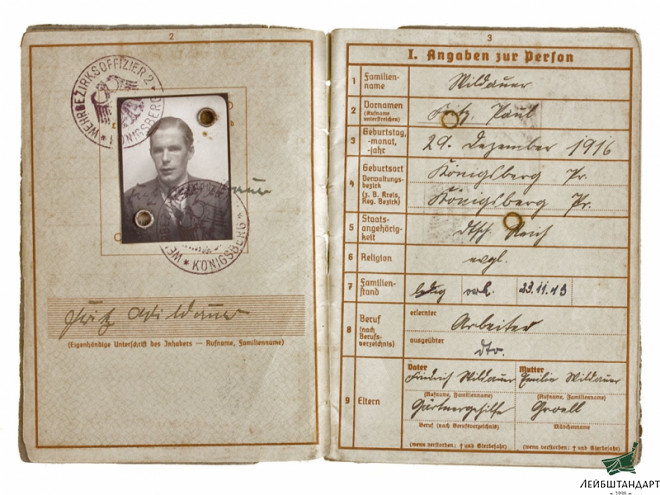 2
WEHRBEZIRKSOFFIZIER 2
KÖNIGSBERG
KÖNIGSBERG
Fritz Wildauer
(Eigenhändige Unterschrift des Inhabers — Rufname, Familienname)
3
I. Angaben zur Person
1 Familien-
name
Wildauer
2 Vornamen
(Rufname
unterstreichen)
Fritz Paul
3 Geburtstag,
-monat,
-jahr
29. Dezember 1916
4 Geburtsort
Verwaltungs-
bezirk
(z. B. Kreis,
Reg. Bezirk)
Königsberg Pr.
Königsberg Pr.
5 Staats-
angehörig-
keit
dtsch. Reich
6 Religion
evgl.
7 Familien-
stand
ledig verh. 23.11.43
8 Beruf
(nach
Berufs-
verzeichnis)
erlernter
Arbeiter
ausgeübter
dto.
9 Eltern
Vater
Friedrich Wildauer
(Rufname, Familienname)
Gärtnergehilfe
Beruf (nach Berufsverzeichnis)
(wenn verstorben: † und Sterbejahr)
Mutter
Emilie Wildauer
(Rufname, Familienname)
Mädchenname
(wenn verstorben: † und Sterbejahr)
ЛЕЙБШТАНДАРТ